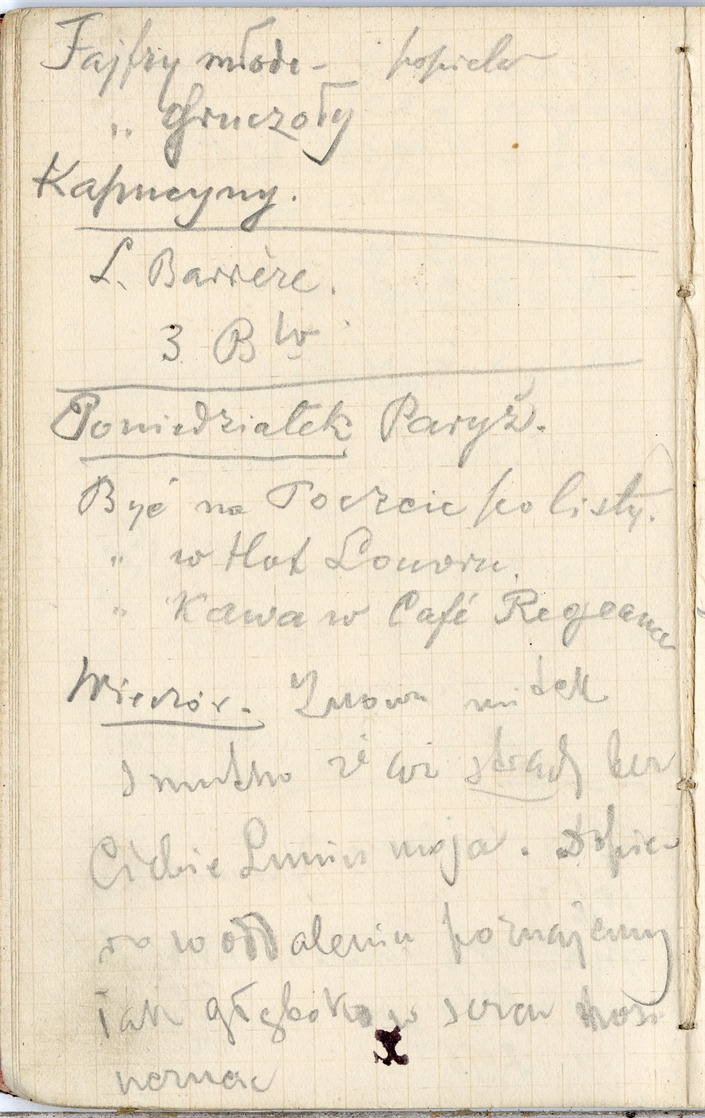 Fajfry młode -
" Gruczoły
Kapucyny.
L. Barrère.
3 B
Poniedziałek Paryż.
Być na Poczcie po listy.
" w Hot Louvru.
" Kawa w Café
Wieczór. Znowu mi tak
smutno że aż strach bez
Ciebie Luniu moja. Dopie
ro w oddaleniu poznajemy
jak głęboko w sercu